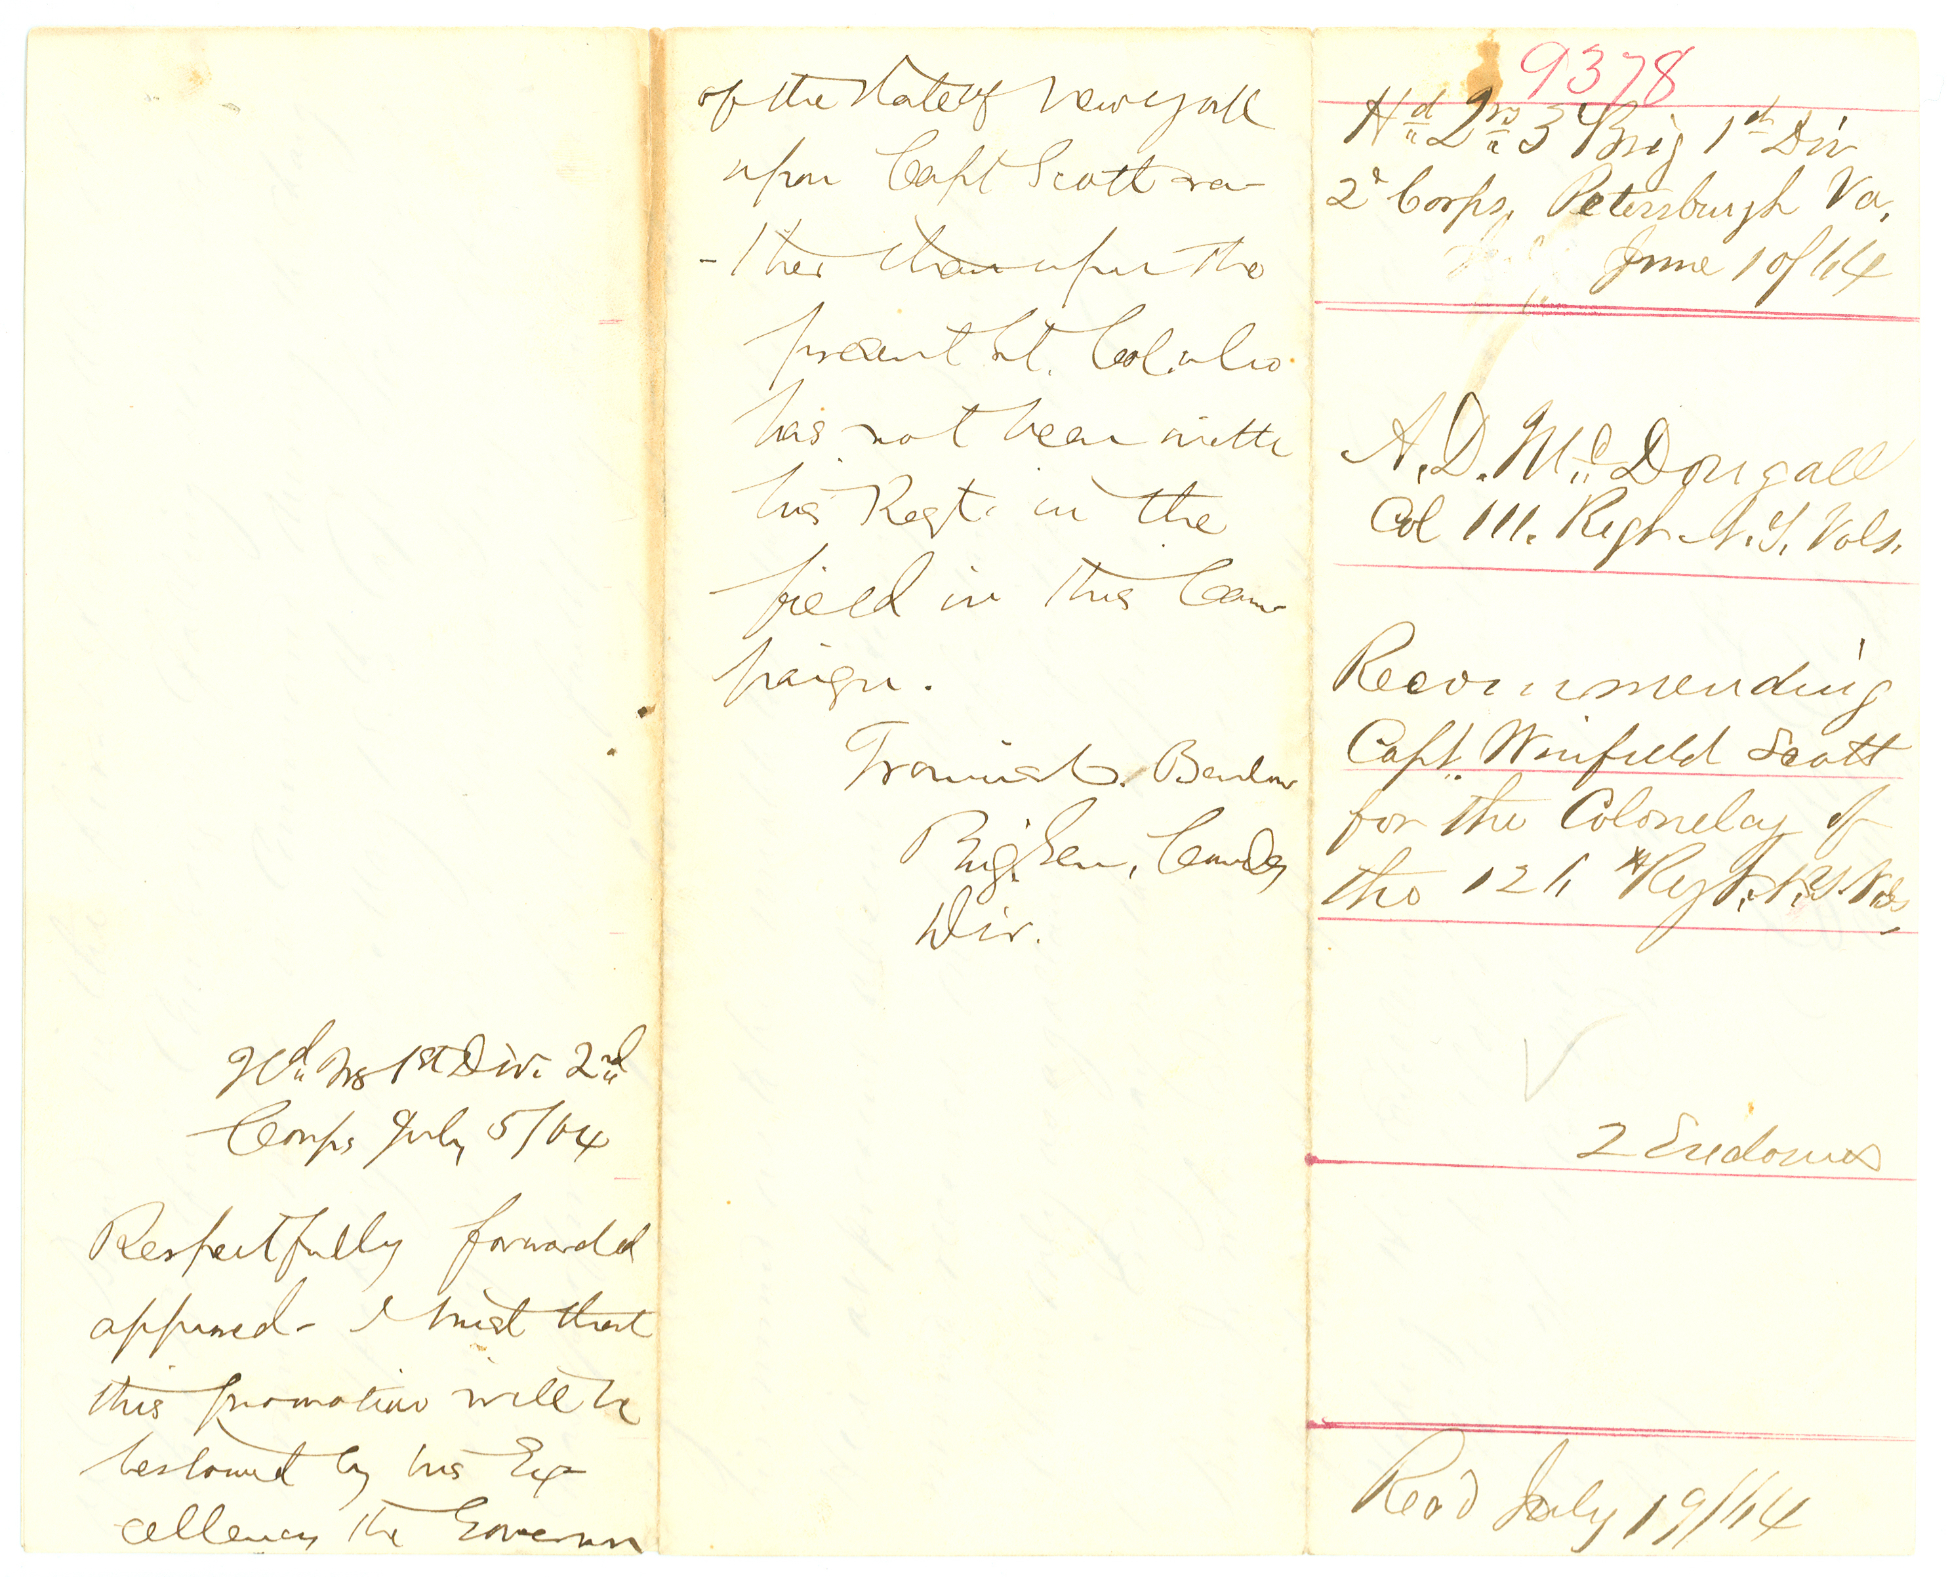 Hd Qrs 1st Div. 2nd
Corps July 5/64
Respectfully forwarded
approved - I trust that
this promotion will be
bestowed by his Ex-
cellency the Governor
of the State of New York
upon Capt Scott ra-
-ther than upon the
present Lt. Col. who
has not been with
his Regt. in the
field in this Cam-
paign.
Francis C. Barlow
Brig. Gen, Comdg
Div.
9378
Hd Qrs 3 Brig 1st Div
2d Corps, Petersburgh Va,
June /64
A. D. McDougall
Col 111. Regt N. Y. Vols.
Recommending
Capt. Winfield Scott
for the Colonelcy of
the 126 Regt. N. Y. Vols,
2 Enclosures
Recd July 19/64